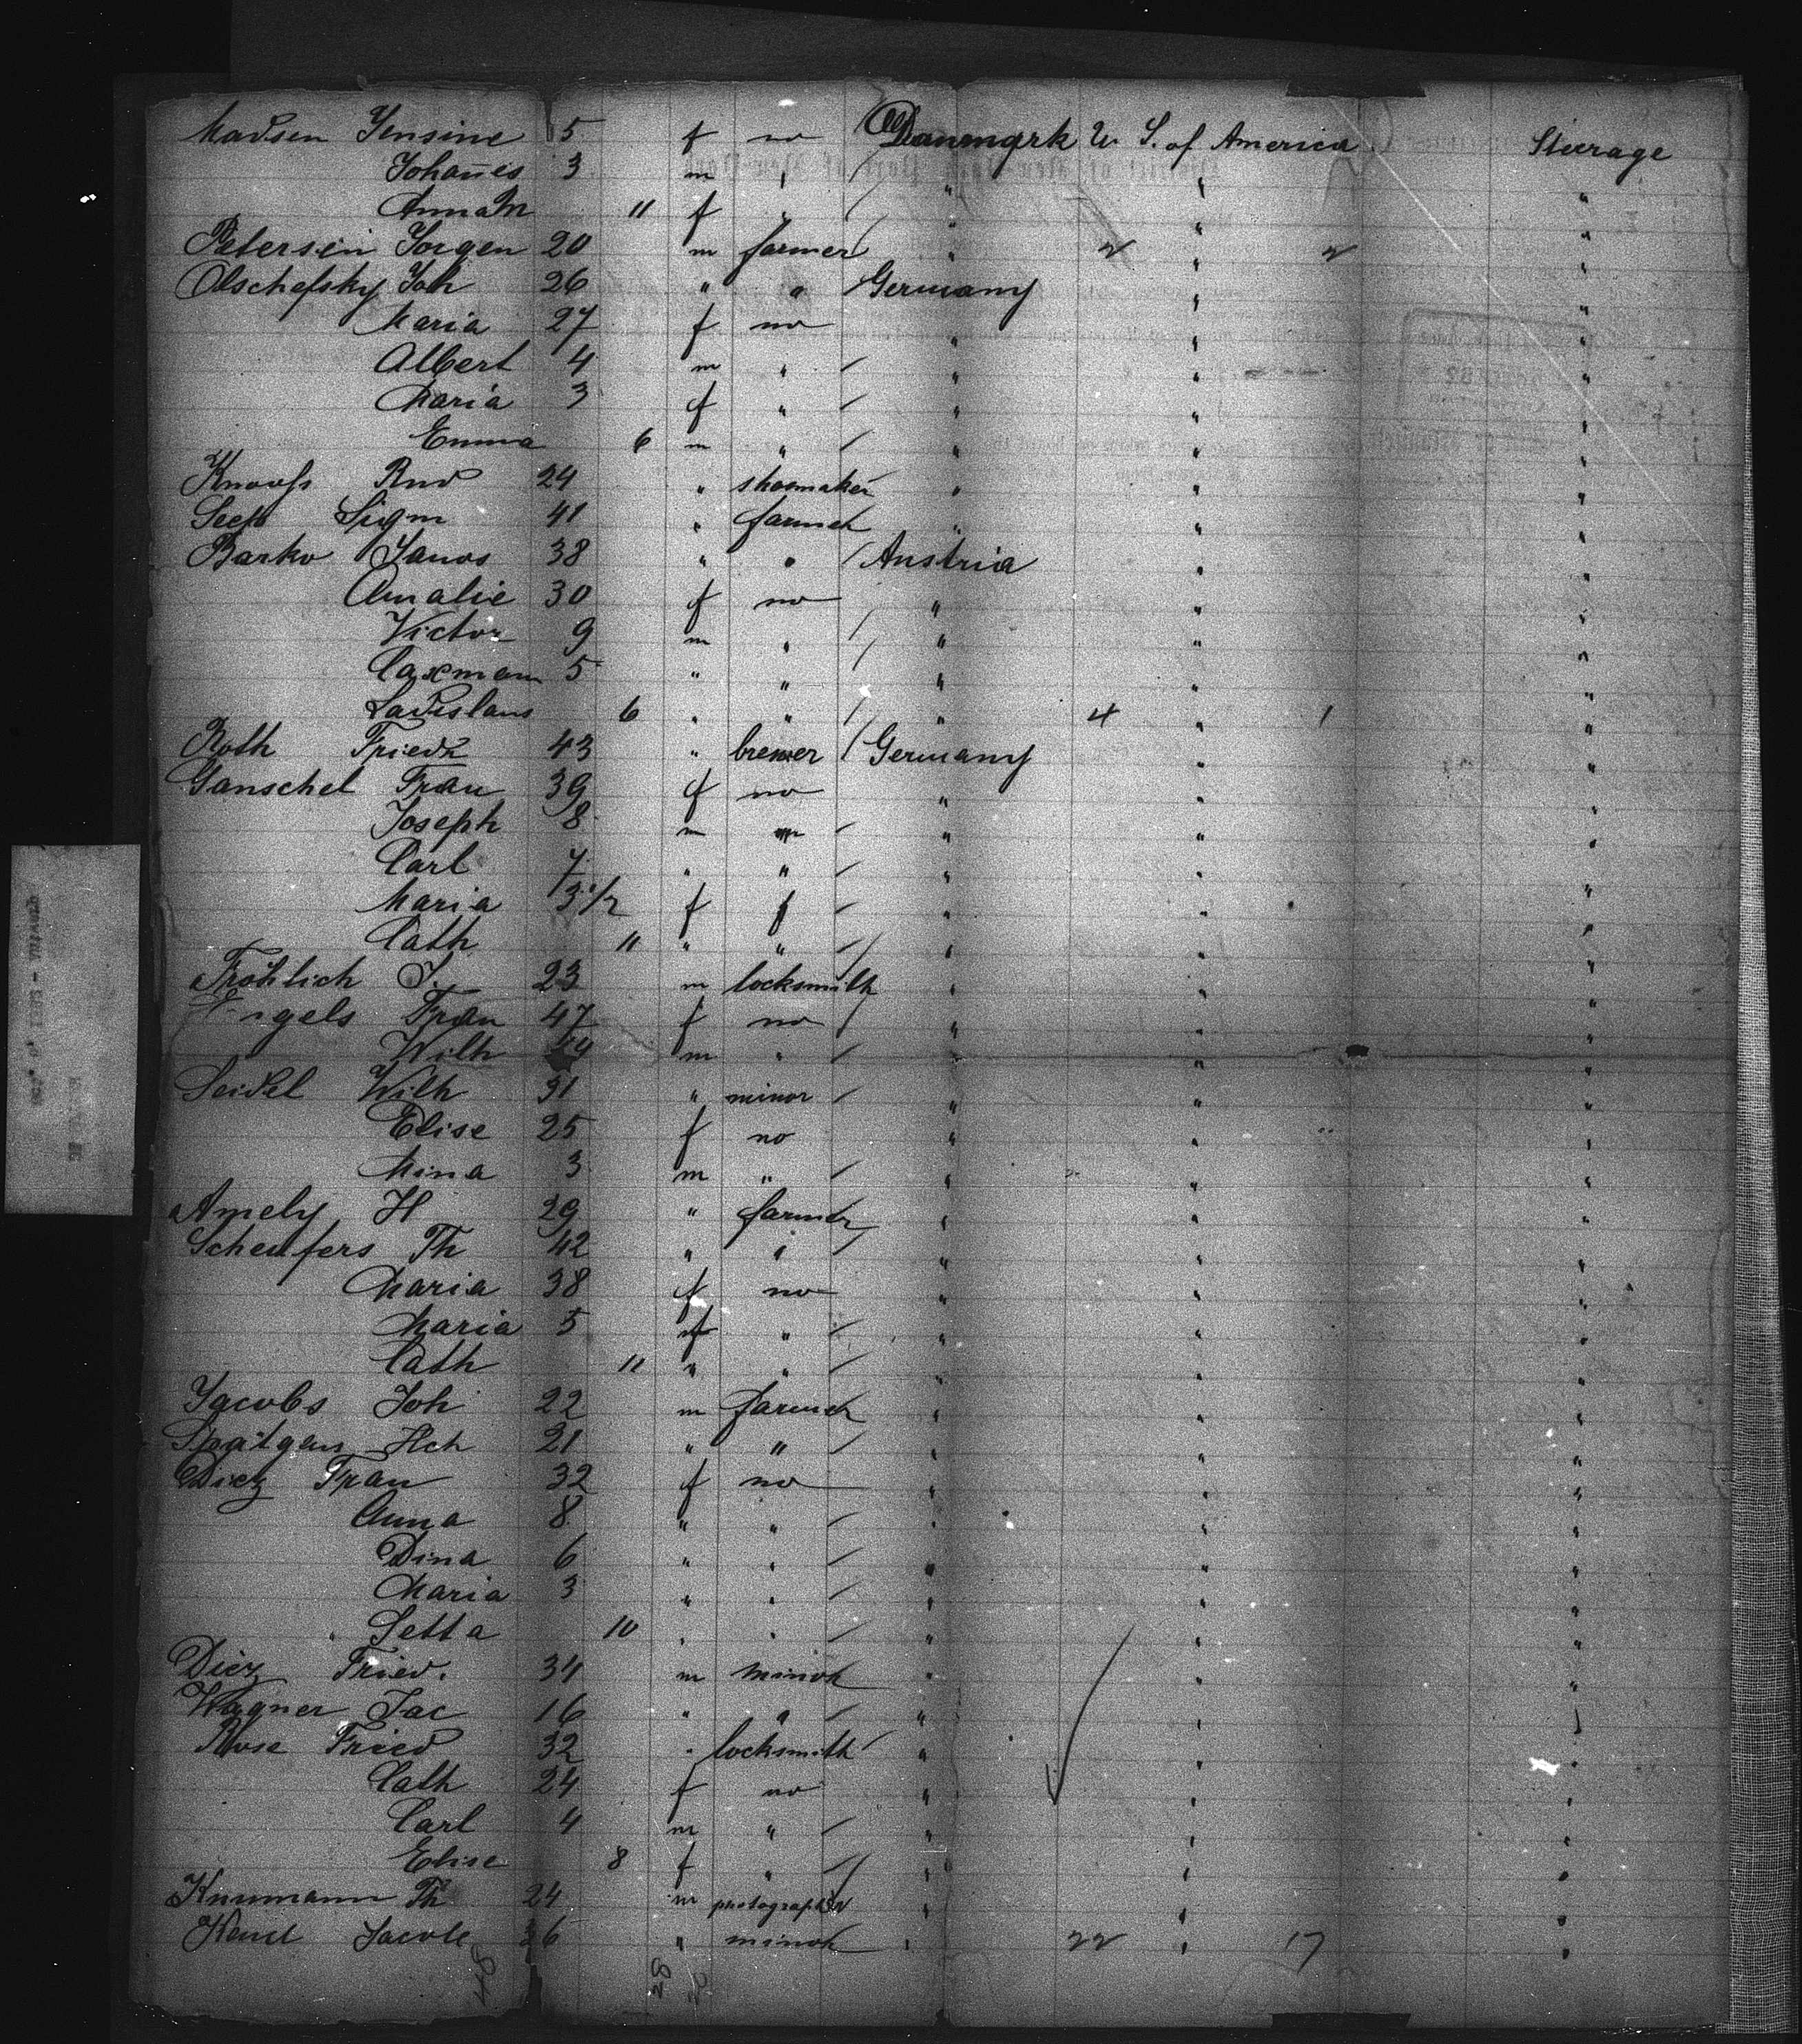 Madsen Jensine 5 f no Danmark U. S. of America Steerage
Johannes 3 m " " " "
Anna M 11 f " " " "
Petersen Jorgen 20 m farmer " 2 " 2 "
Olschefsky Joh 26 " " Germany " "
Maria 27 f no " " "
Albert 4 m " " " "
Maria 3 f " " " "
Emma 6 m " " " "
Knoofs Rud 24 " shoemaker " " "
Seck Sigm 41 " farmer " " "
Barko Janos 38 " " Austria " "
Amalie 30 f no " " "
Victor 9 m " " " "
5 " " " " "
Ladislaus 6 " " " 4 " 1 "
Roth Friedr 43 " brewer Germany " "
Ganschel Frau 39 f no " " "
Joseph 8 m " " " "
Carl 7 " " " " "
Maria 3 1/2 f " " " "
Cath 11 " " " " "
Fröhlich J. 23 m locksmith " " "
Frau 47 f no " " "
Wilh m " " " "
Seidel Wilh 31 " minor " " "
Elise 25 f no " " "
Mina 3 m " " " "
Amely H 29 " farmer " " "
Scheufers Th 42 " " " " "
Maria 38 f no " " "
Maria 5 f " " " "
Cath 11 " " " " "
Jacobs Joh 22 m farmer " " "
Spatgen Hch 21 " " " " "
Diez Frau 32 f no " " "
Anna 8 " " " " "
Dina 6 " " " " "
Maria 3 " " " " "
Setta 10 " " " " "
Diez Fried. 34 m minor " " "
Wagner Jac 16 " " " " "
Rose Fried 32 " locksmith " " "
Cath 24 f no " " "
Carl 4 m " " " "
Elise 8 f " " " "
Th 24 m photographer " " "
Jacob 36 " minor " 22 " 17 "